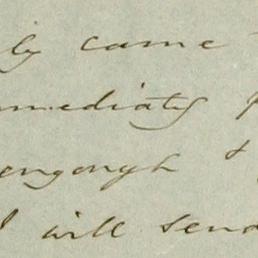 ly came
mmediately
engough &
I will send